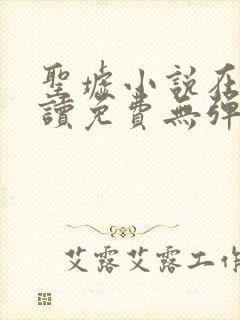 聖墟小說在
讀免費無彈
艾露艾露工作